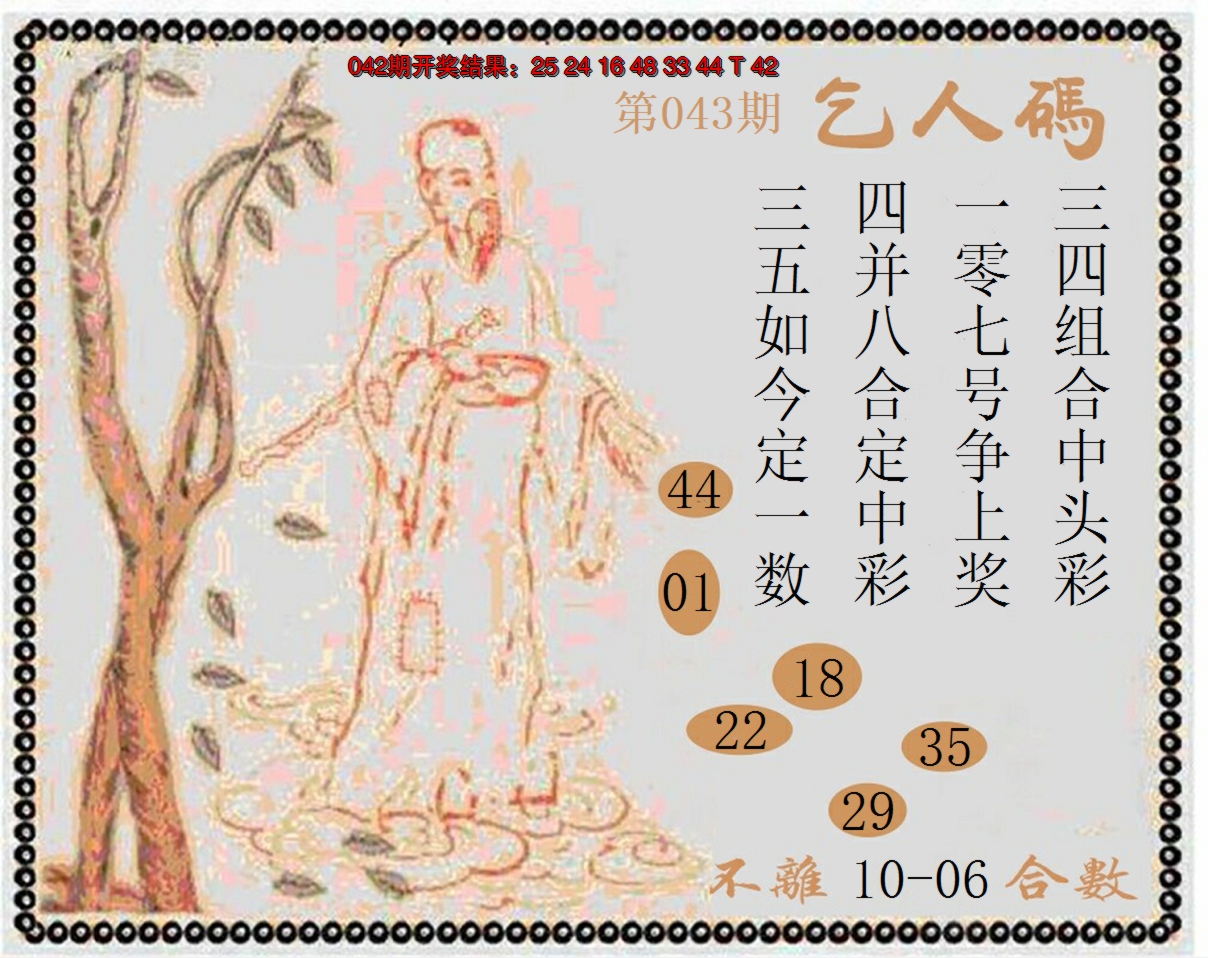 042期开奖结果：25 24 16 48 33 44 T 42
第043期 乞人碼
三四组合中头彩
一零七号争上奖
四并八合定中彩
三五如今定一数
44
01
18
22
35
29
不離 10-06 合數